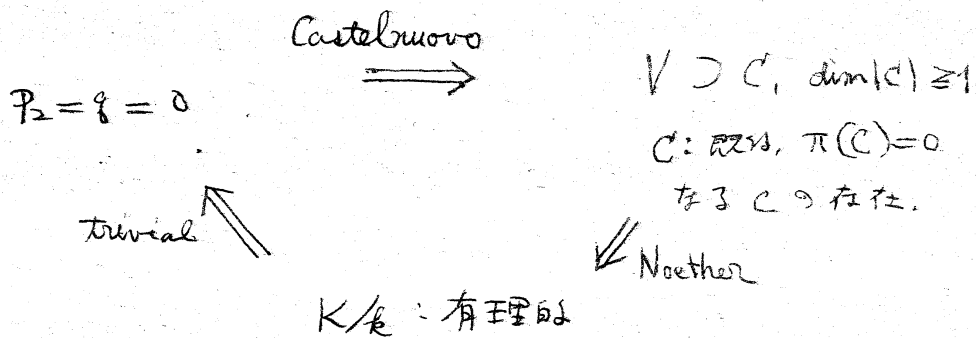 Castelnuovo
⟹
V ⊃ C, dim|C| ≧ 1
P₂ = q = 0
C: 既約, π(C)=0
なる C の存在.
trivial
Noether
K/k : 有理的